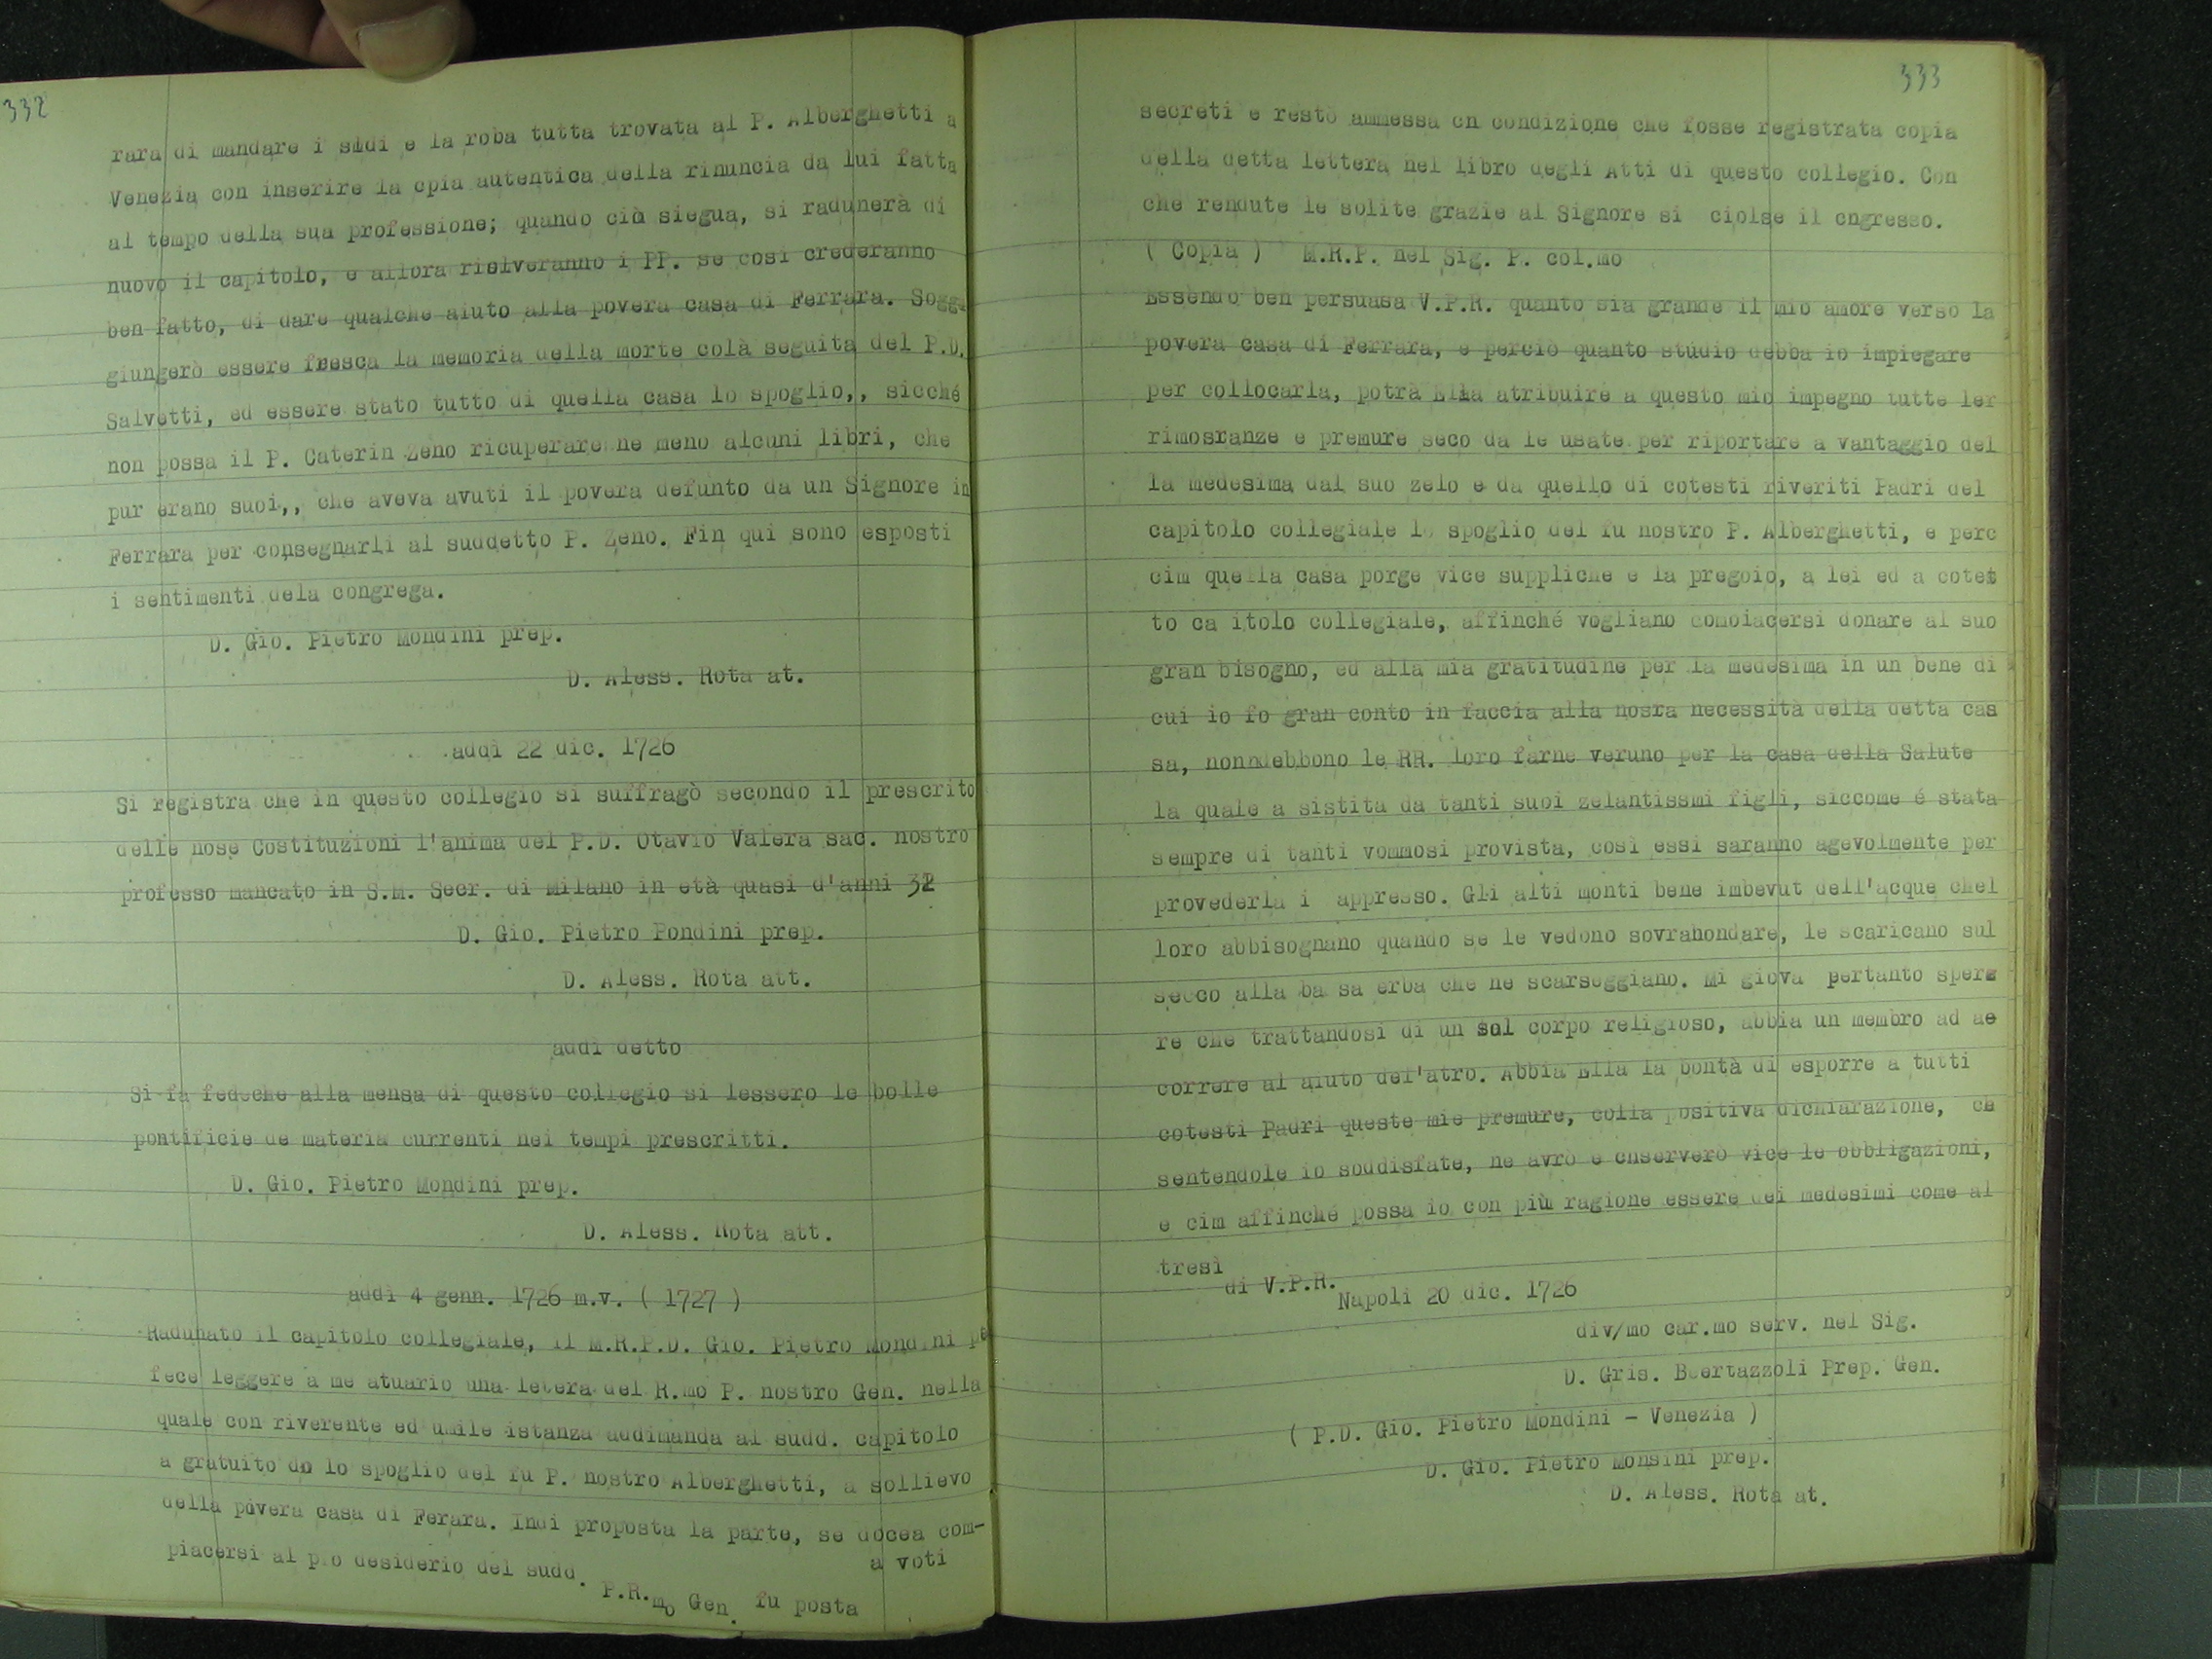 332
rara di mandare i sldi e la roba tutta trovata al P. Alberghetti a
Venezia con inserire la cpia autentica della rinuncia da lui fatta
al tempo della sua professione; quando ciò siegua, si radunerà di
nuovo il capitolo, e allora rislveranno i PP. se così crederanno
ben fatto, di dare qualche aiuto alla povera casa di Ferrara. Sogg
giungerò essere fresca la memoria della morte colà seguita del P.D.
Salvetti, ed essere stato tutto di quella casa lo spoglio,, sicché
non possa il P. Caterin Zeno ricuperare ne meno alcuni libri, che
pur erano suoi,, che aveva avuti il povera defunto da un Signore in
Ferrara per consegnarli al suddetto P. Zeno. Fin qui sono esposti
i sentimenti dela congrega.
D. Gio. Pietro Mondini prep.
D. Aless. Rota at.
addì 22 dic. 1726
Si registra che in questo collegio si suffragò secondo il prescrito
delle nose Costituzioni l'anima del P.D. Otavio Valera sac. nostro
professo mancato in S.M. Secr. di Milano in età quasi d'anni
D. Gio. Pietro Pondini prep.
D. Aless. Rota att.
addì detto
Si fa fedeche alla mensa di questo collegio si lessero le bolle
pontificie de materia currenti nei tempi prescritti.
D. Gio. Pietro Mondini prep.
D. Aless. Rota att.
addì 4 genn. 1726 m.v. ( 1727 )
Radunato il capitolo collegiale, il M.R.P.D. Gio. Pietro Mondini pe
fece leggere a me atuario una letera del R.mo P. nostro Gen. nella
quale con riverente ed umile istanza addimanda al sudd. capitolo
a gratuito do lo spoglio del fu P. nostro Alberghetti, a sollievo
della povera casa di Ferara. Indi proposta la parte, se docea com-
piacersi al pio desiderio del sudd. P.R.mo Gen. fu posta a voti
333
secreti e restò ammessa cn condizione che fosse registrata copia
della detta lettera nel libro degli Atti di questo collegio. Con
che rendute le solite grazie al Signore si ciolse il cngresso.
( Copia ) M.R.P. nel Sig. P. col.mo
Essendo ben persuasa V.P.R. quanto sia grande il mio amore verso la
povera casa di Ferrara, e perciò quanto studio debba io impiegare
per collocarla, potrà Ella atribuire a questo mio impegno tutte ler
rimosranze e premure seco da le usate per riportare a vantaggio del
la medesima dal suo zelo e da quello di cotesti riveriti Padri del
capitolo collegiale lo spoglio del fu nostro P. Alberghetti, e perc
cim quella casa porge vice suppliche e la pregoio, a lei ed a cotes
to ca itolo collegiale, affinché vogliano comoiacersi donare al suo
gran bisogno, ed alla mia gratitudine per la medesima in un bene di
cui io fo gran conto in faccia alla nosra necessità della detta cas
sa, nonndebbono le RR. loro farne veruno per la casa della Salute
la quale a sistita da tanti suoi zelantissmi figli, siccome é stata
sempre di tanti vommosi provista, così essi saranno agevolmente per
provederla i appresso. Gli alti monti bene imbevut dell'acque chel
loro abbisognano quando se le vedono sovrahondare, le scaricano sul
secco alla ba sa erba che ne scarseggiano. Mi giova pertanto spera
re che trattandosi di un sol corpo religioso, abbia un membro ad ac
correre al aiuto del'atro. Abbia Ella la bontà di esporre a tutti
cotesti Padri queste mie premure, colla positiva dichiarazione, ce
sentendole io soddisfate, ne avrò e cnserverò vice le obbligazioni,
e cim affinché possa io con più ragione essere dei medesimi come al
tresì
di V.P.R.
Napoli 20 dic. 1726
div/mo car.mo serv. nel Sig.
D. Gris. Beertazzoli Prep. Gen.
( P.D. Gio. Pietro Mondini - Venezia )
D. Gio. Pietro Monsini prep.
D. Aless. Rota at.